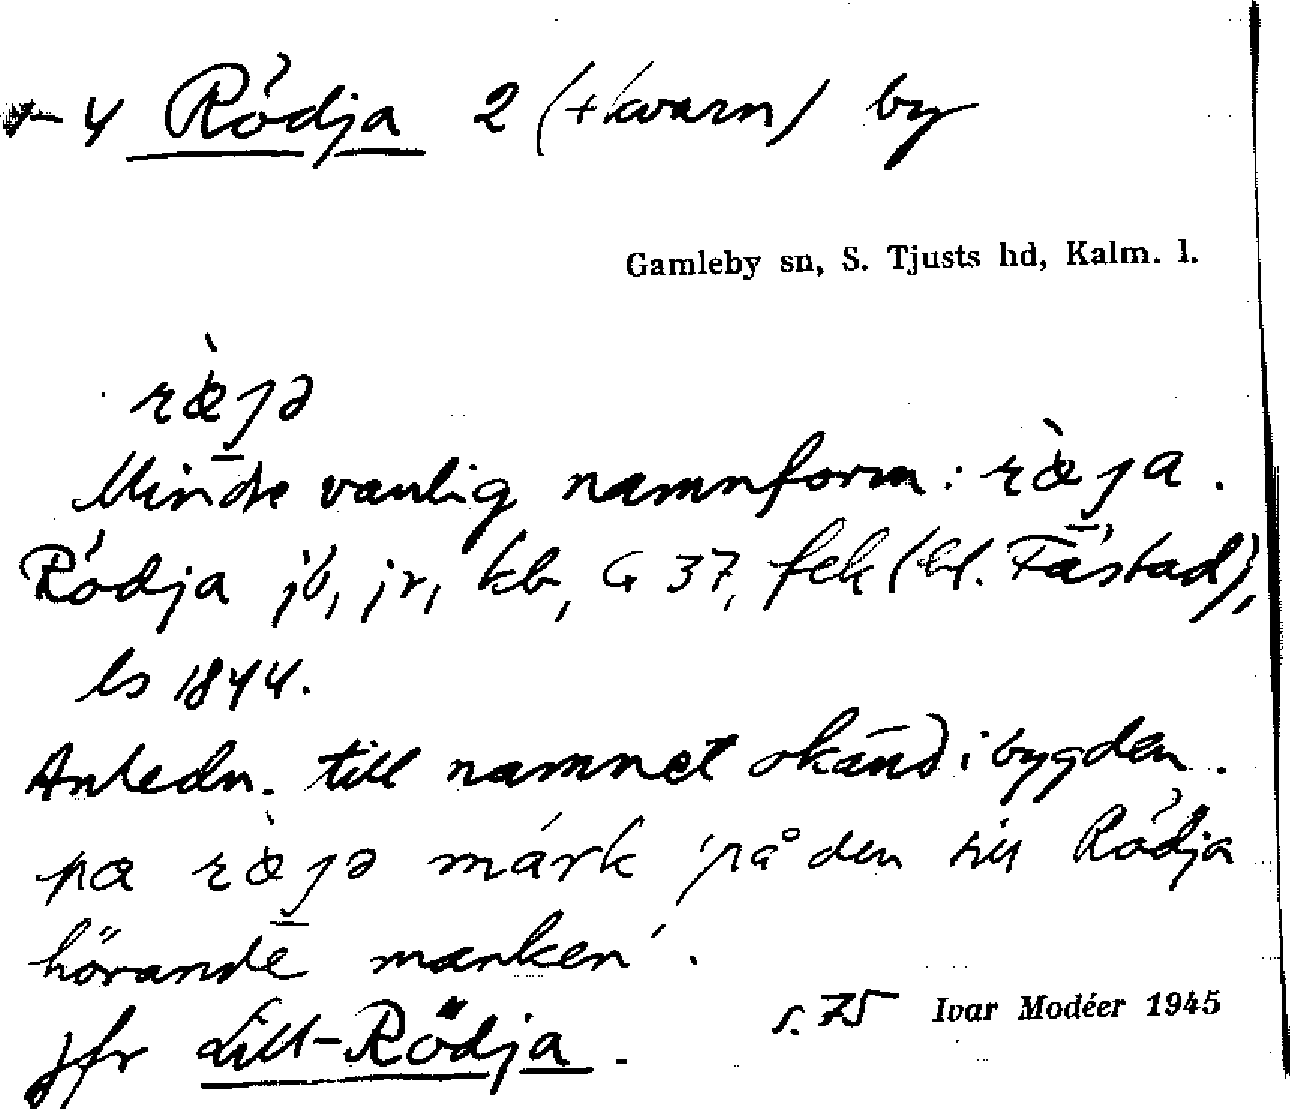 4 Rödja 2 (+kvarn) by
Gamleby sn, S. Tjusts hd, Kalm. l.
ræ̀jə
Mindre vanlig namnform: ræ̀ja.
Rödja jb, jr, kb, G 37, fek (bl. Fästad),
ls 1844.
Anledn. till namnet okänd i bygden.
pa ræ̀jə márk 'på den till Rödja
hörande marken'.
Jfr Lill-Rödja.
s. 75 Ivar Modéer 1945